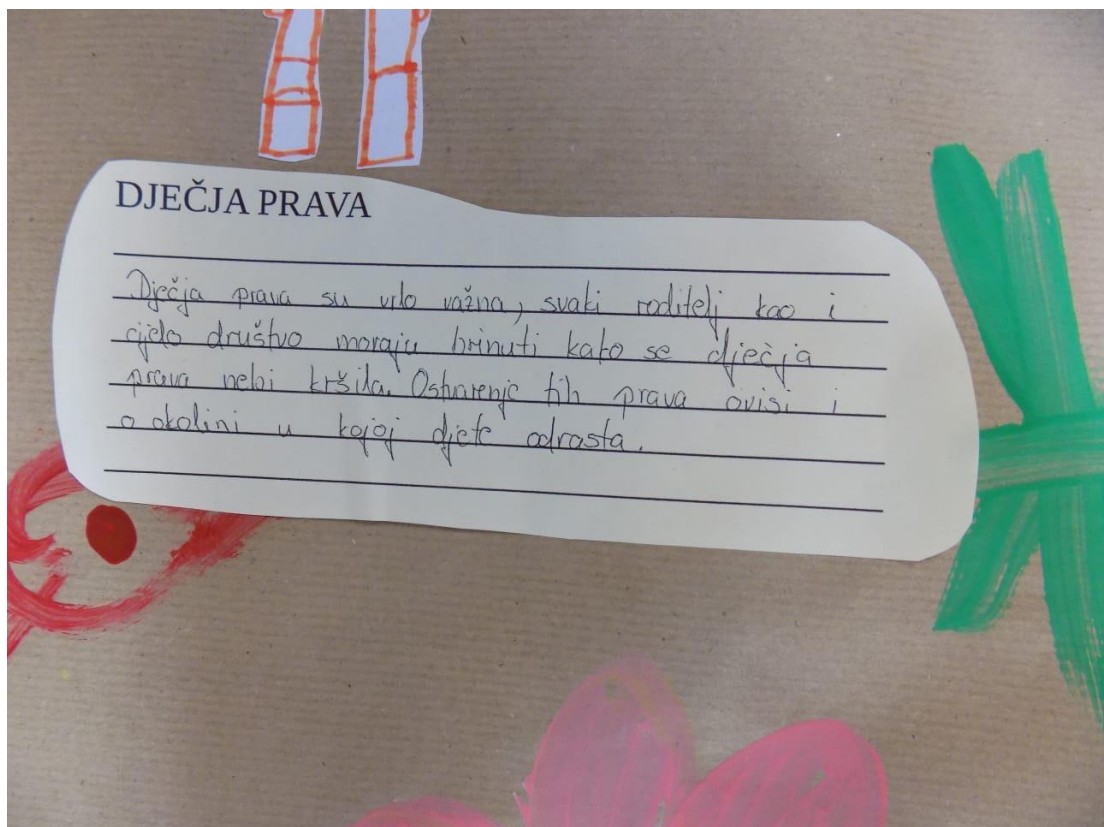 DJEČJA PRAVA
Dječja prava su vrlo važna, svaki roditelj kao i
cjelo društvo moraju brinuti kako se dječja
prava nebi kršila. Ostvarenje tih prava ovisi i
o okolini u kojoj djete odrasta.